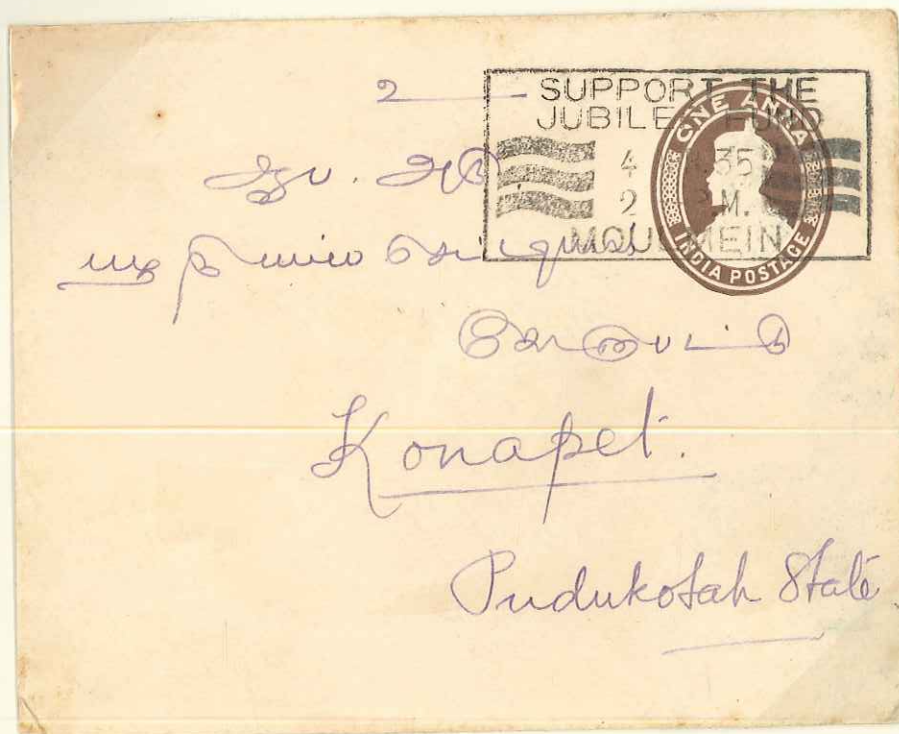 உ
SUPPORT THE
JUBILEE FUND
4 35
2 M.
MOULMEIN
ONE ANNA
INDIA POSTAGE
கோனாபட்டு
Konapet.
Pudukotah State